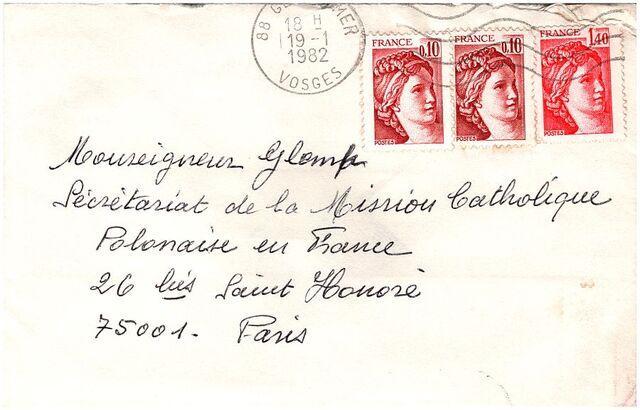 88 G MER
18 H
19-1
1982
VOSGES
FRANCE 0,10
POSTES
FRANCE 0,10
POSTES
FRANCE 1,40
POSTES
Monseigneur Glemp
Sécrétariat de la Mission Catholique
Polonaise en France
26 bis Saint Honoré
75001. Paris